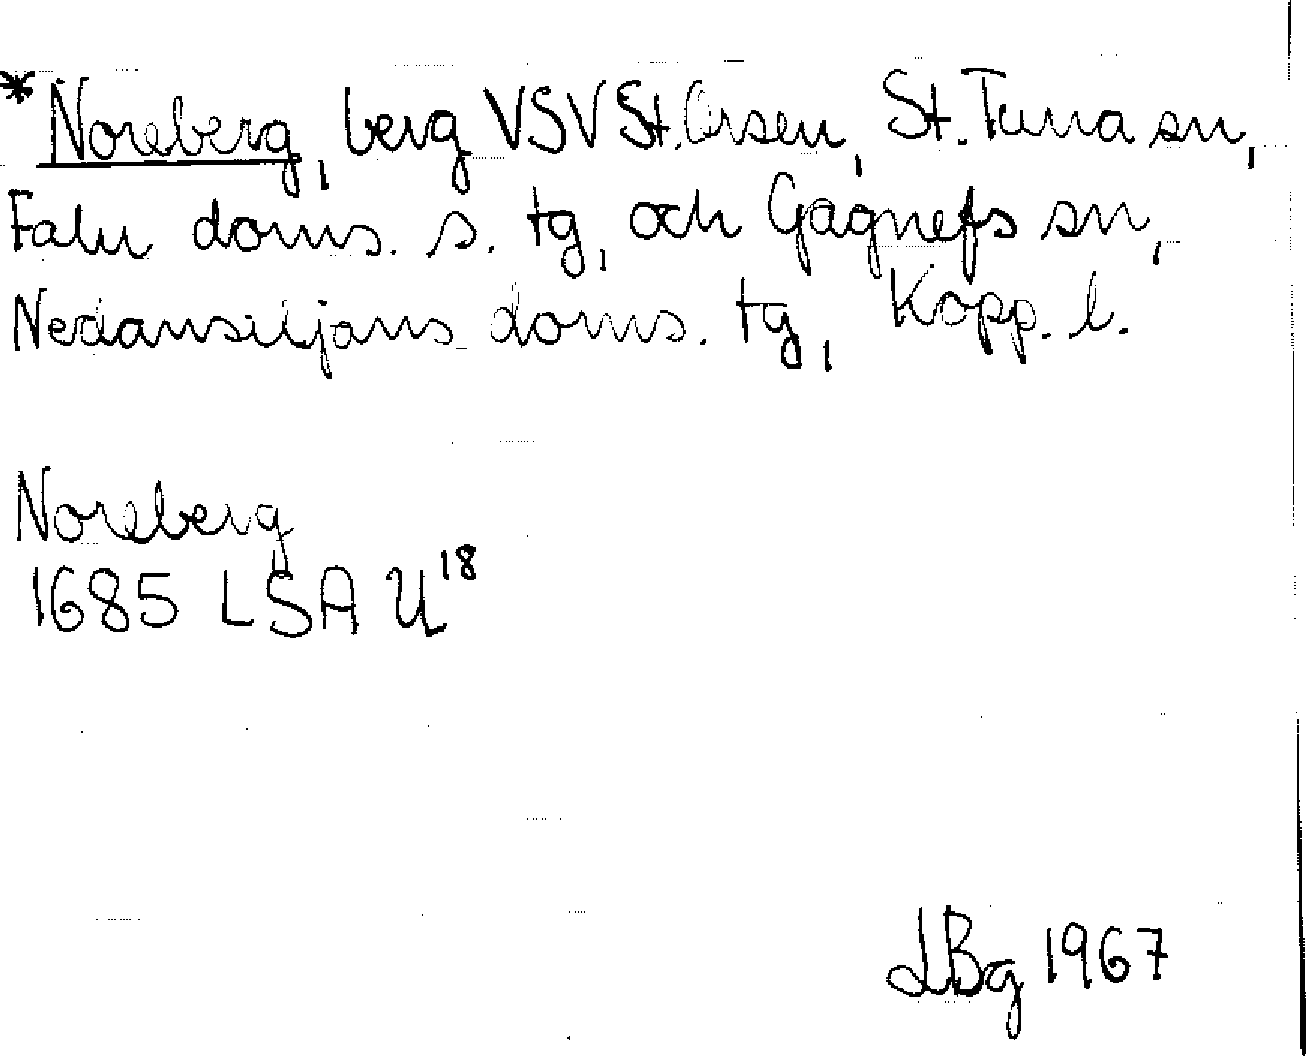 *Noreberg, berg VSV St. Orsen, St. Tuna sn,
Falu doms. s. tg, och Gagnefs sn,
Nedansiljans doms. tg, Kopp. l.
Noreberg
1685 LSA U18
LBg 1967